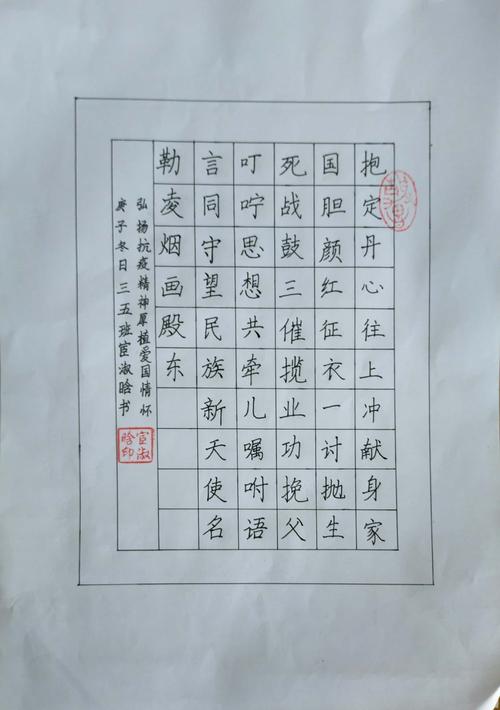 抱定丹心往上冲献身家
国胆颜红征衣一讨抛生
死战鼓三催揽业功挽父
叮咛思想共牵儿嘱咐语
言同守望民族新天使名
勒凌烟画殿东
弘扬抗疫精神厚植爱国情怀
庚子冬日三五班宦淑晗书
宦淑晗印